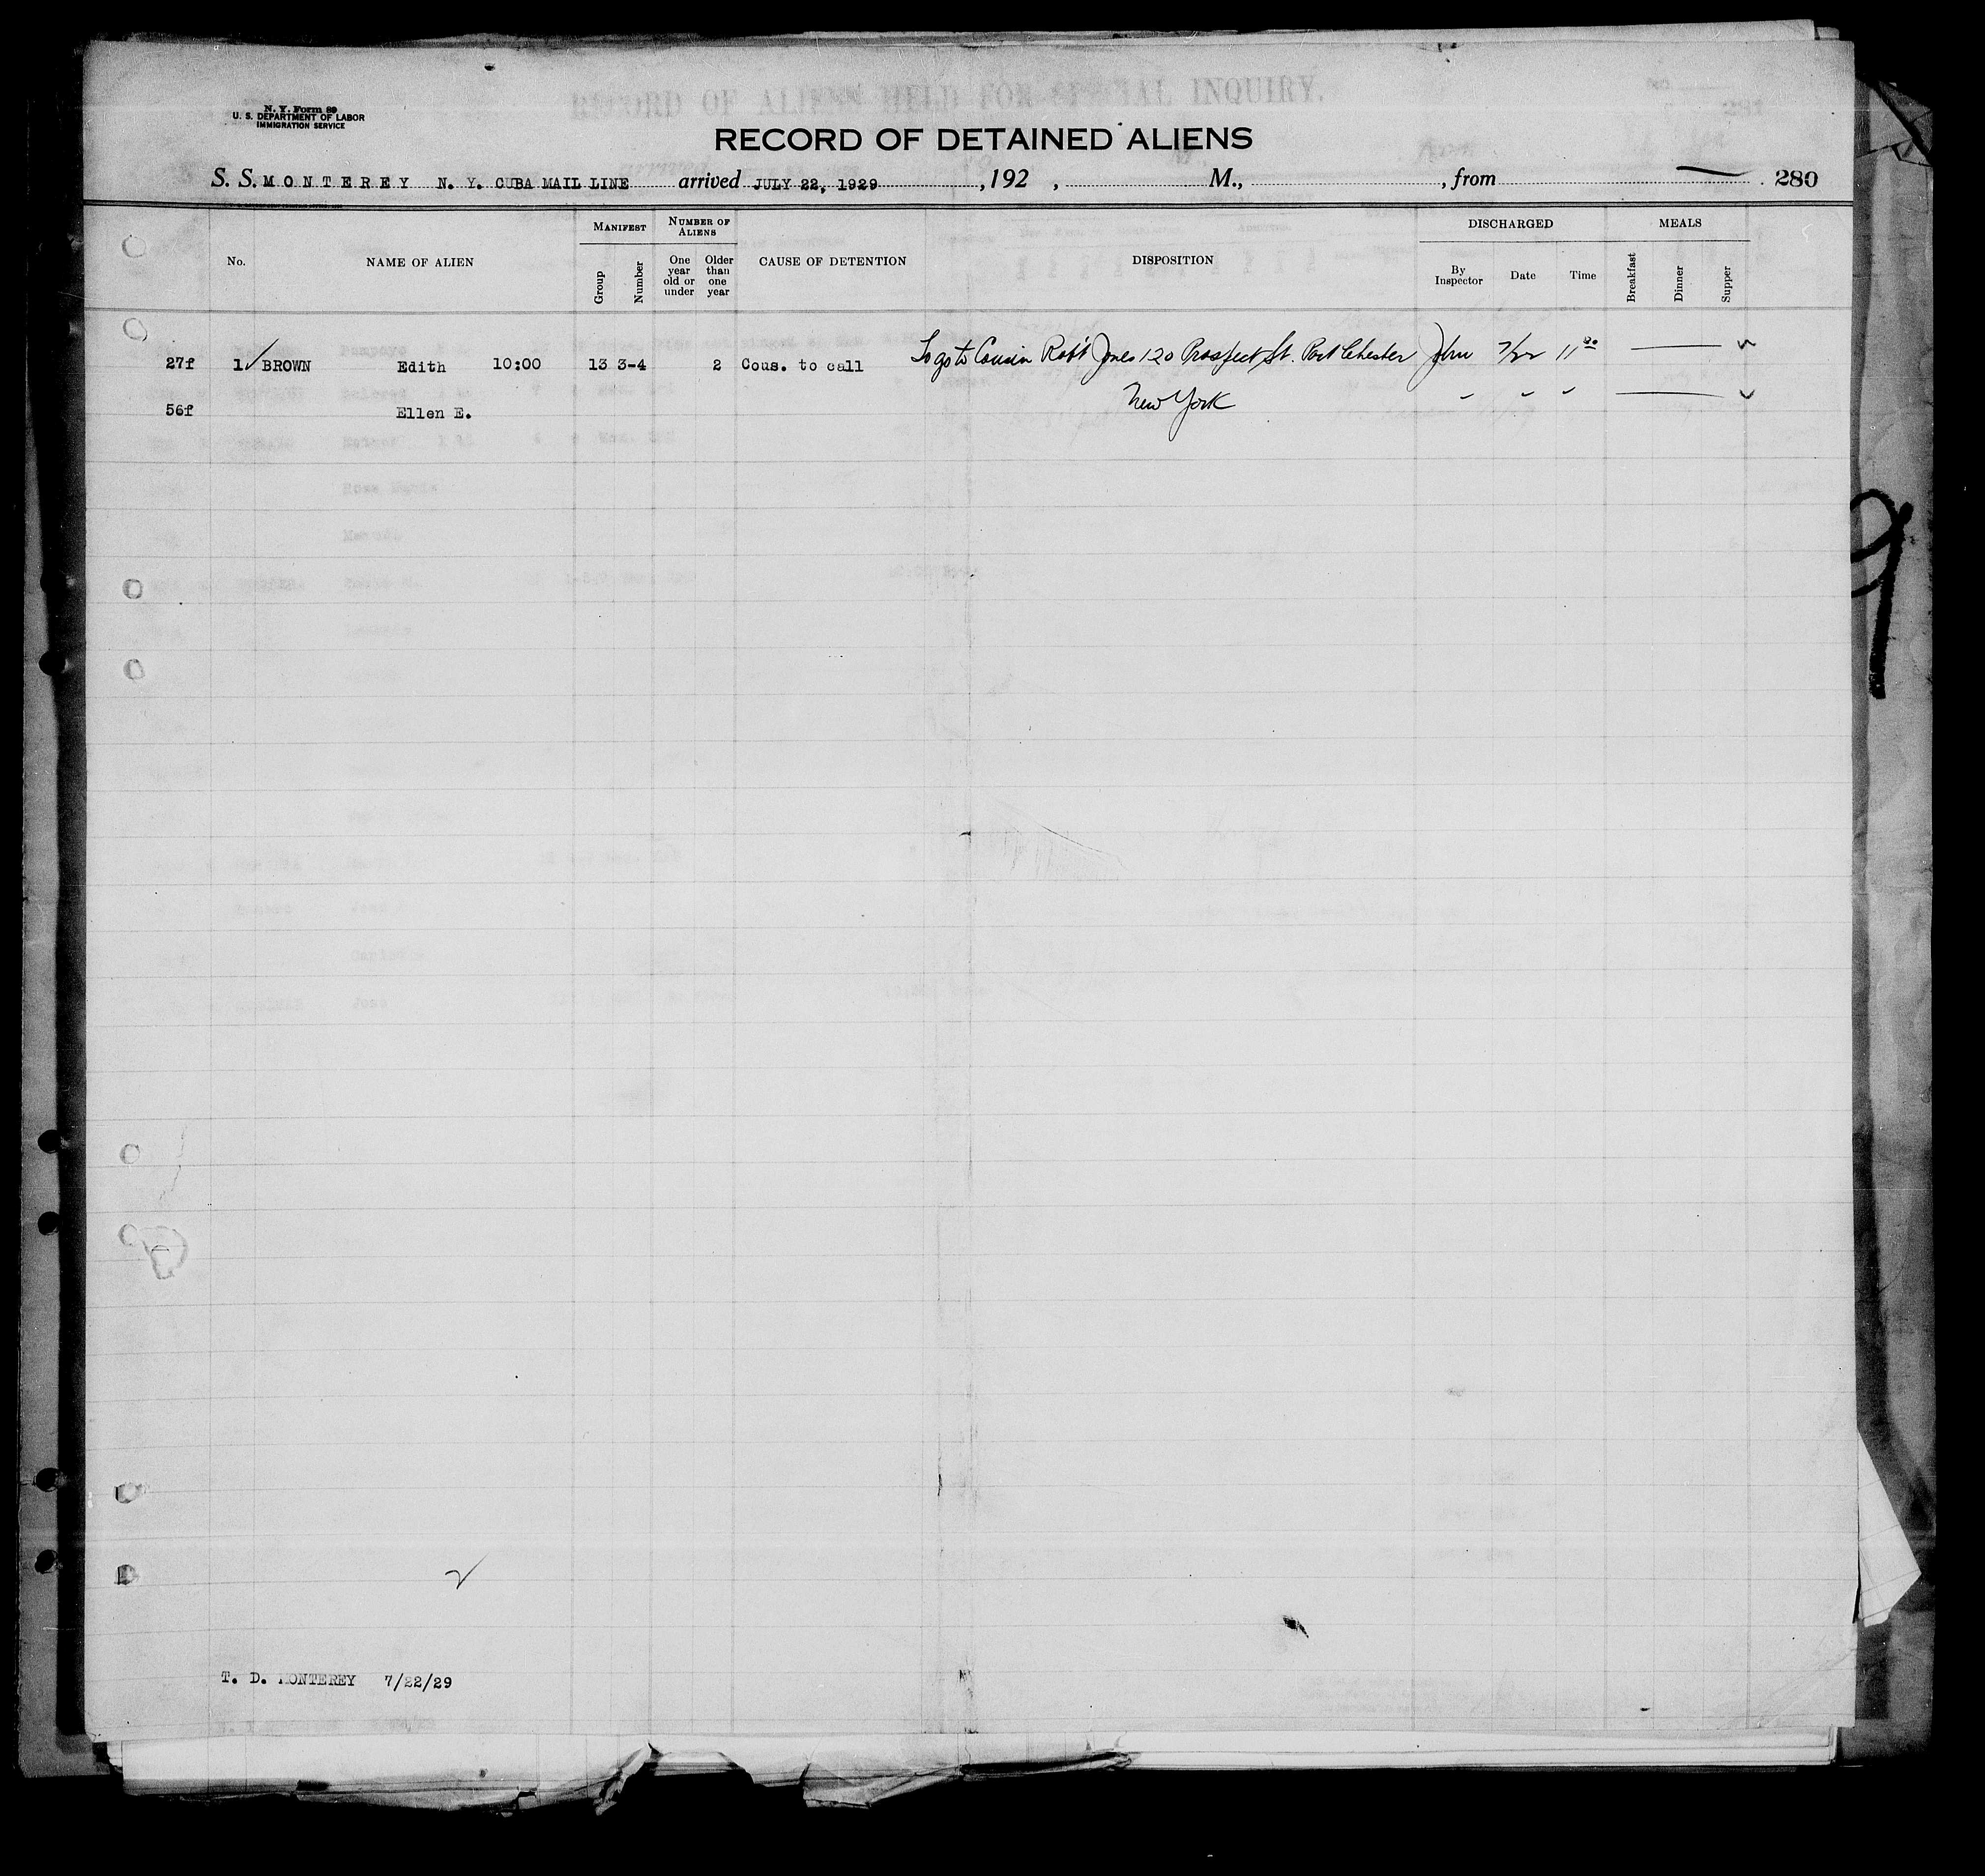 N. Y. Form 89
U. S. DEPARTMENT OF LABOR
IMMIGRATION SERVICE
RECORD OF ALIENS HELD FOR SPECIAL INQUIRY.
281
RECORD OF DETAINED ALIENS
S. S. MONTEREY N. Y. CUBA MAIL LINE arrived JULY 22, 1929 , 192 , M., , from 280
MANIFEST NUMBER OF ALIENS DISCHARGED MEALS
No. NAME OF ALIEN Group Number One year old or under Older than one year CAUSE OF DETENTION DISPOSITION By Inspector Date Time Breakfast Dinner Supper
27f 1 ✓ BROWN Edith 10:00 13 3-4 2 Cous. to call To go to Cousin Rob't Jones 120 Prospect St. Port Chester 7/22 ✓
56f Ellen E. New York " " " ✓
T. D. MONTEREY 7/22/29